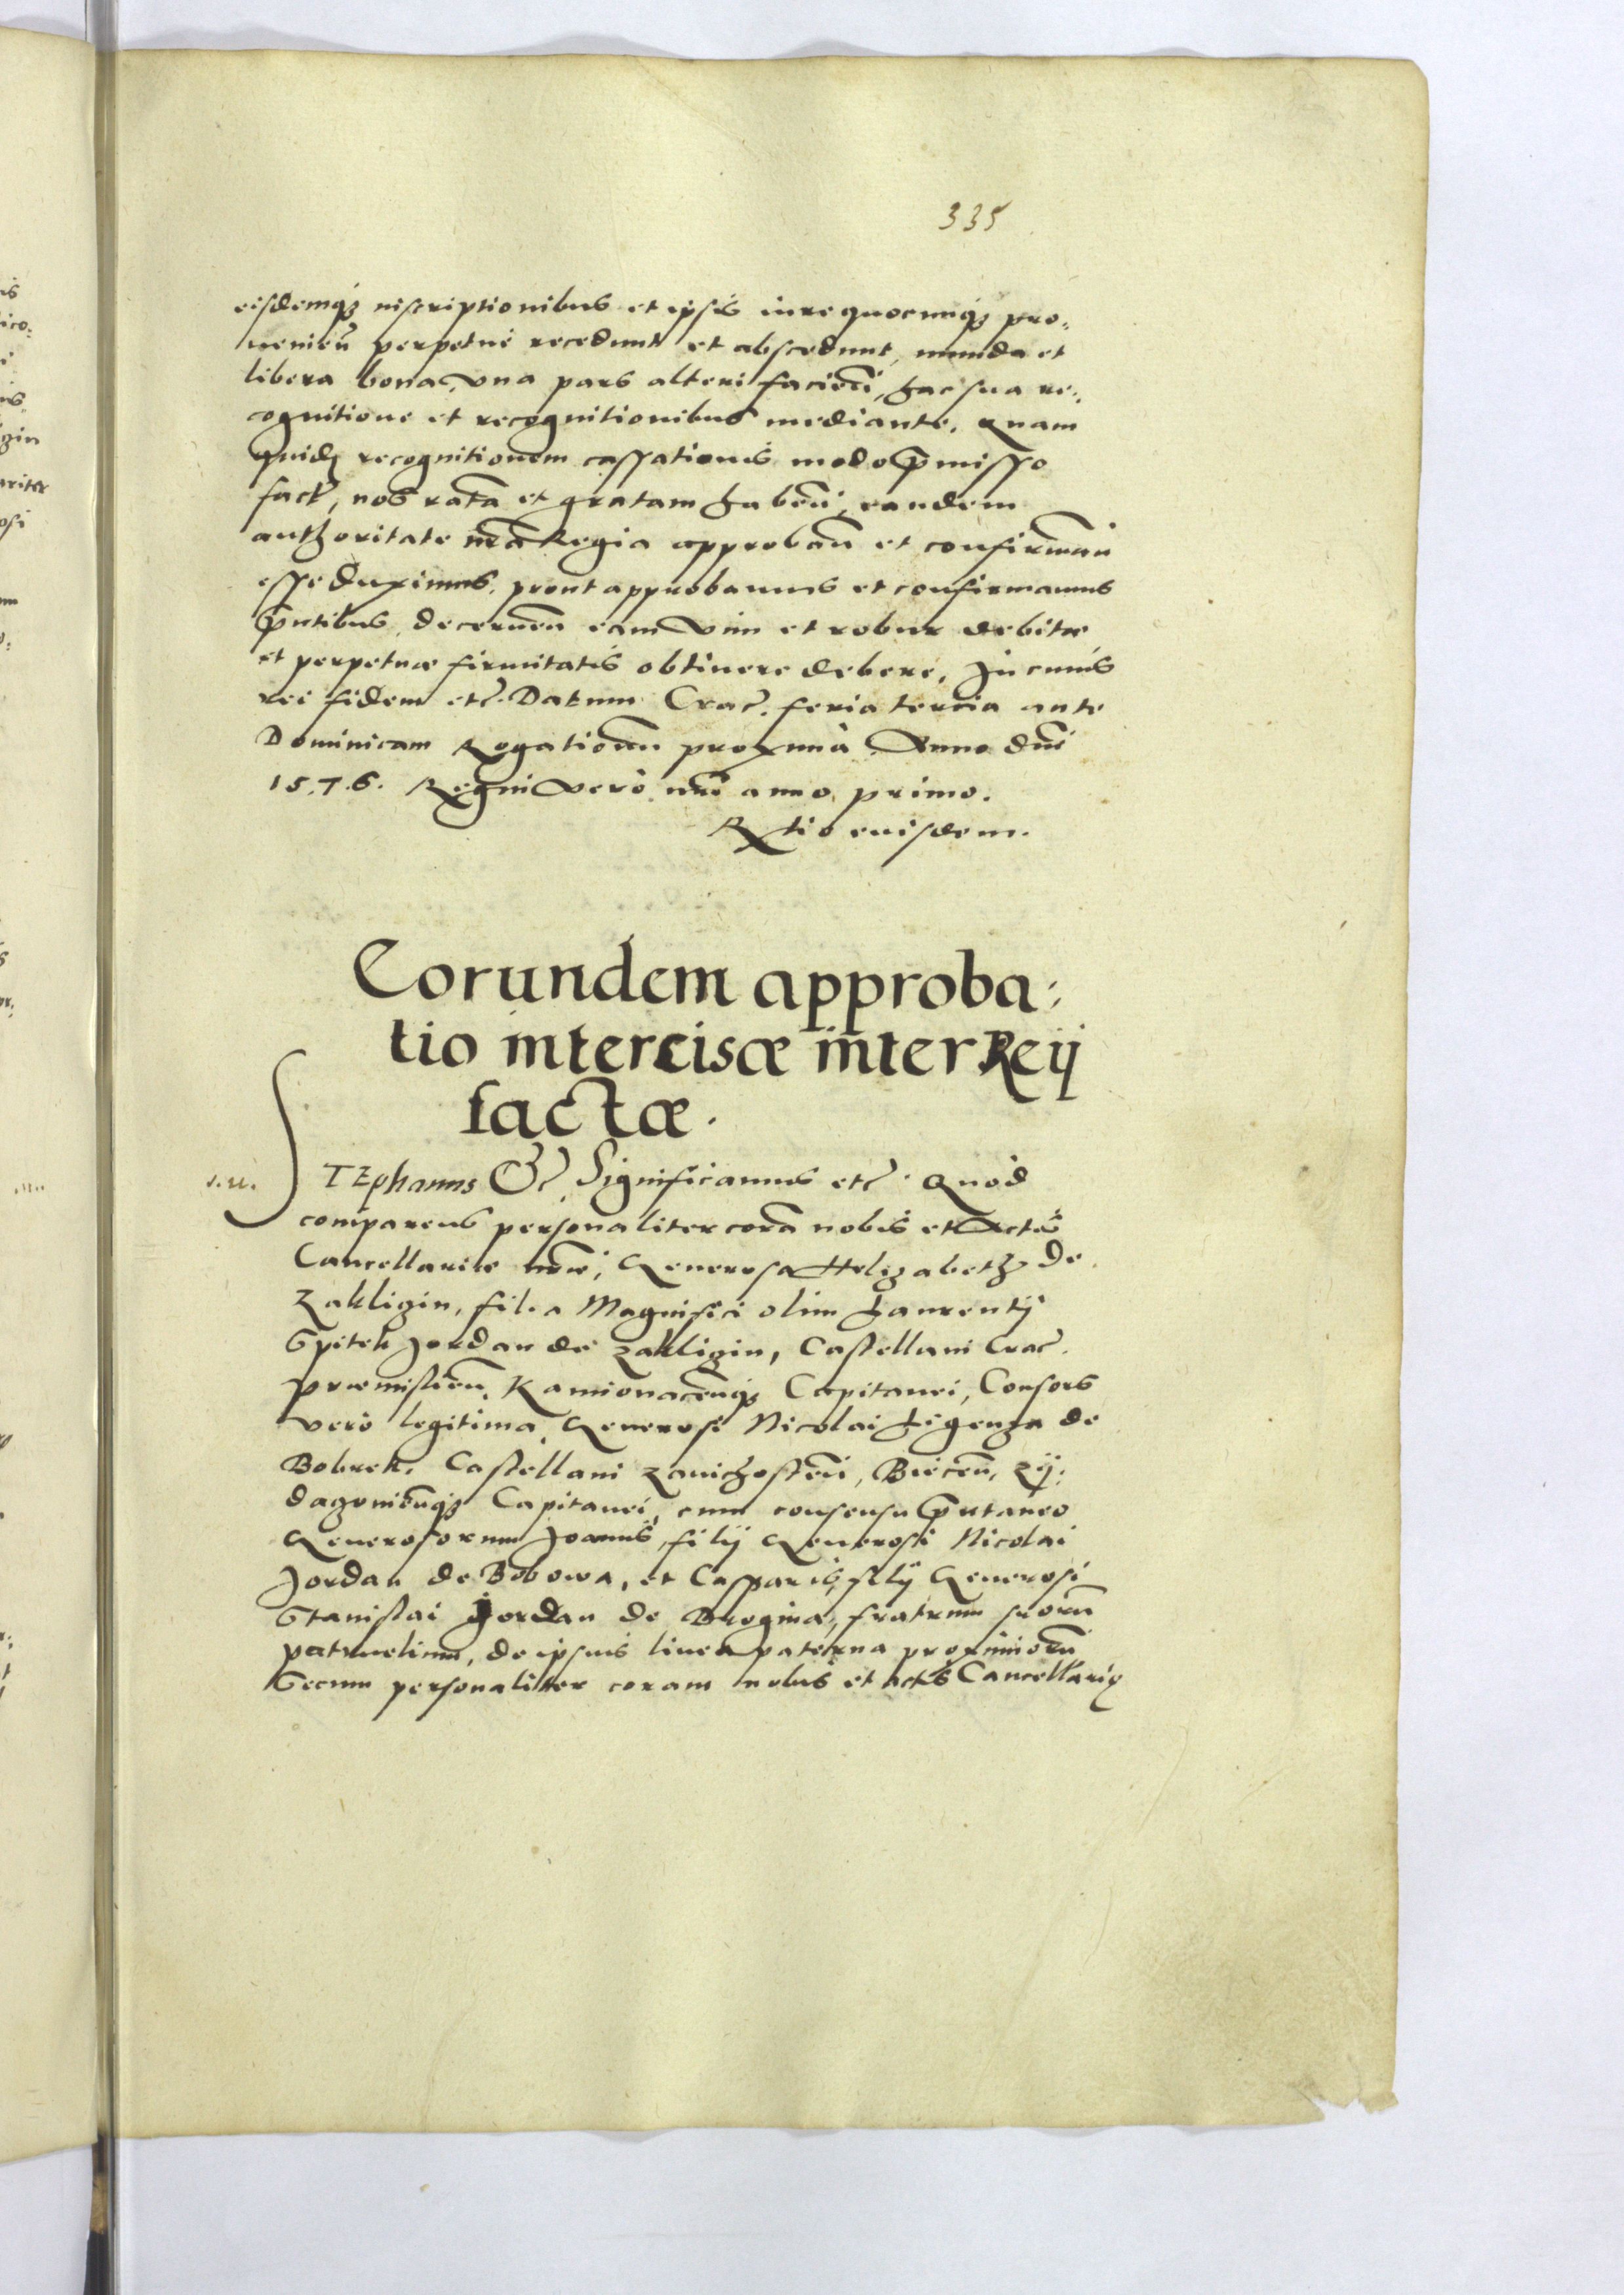 335
eisdemq3 inscriptionibus et ipsis iure quocunq3 pro=
venień perpetue recedunt et abscedunt, munda et
libera bona, una pars alteri facień, hac sua re=
cognitione et recognitionibus mediante. Quam
quidē recognitionem cassationis modo p̄misso
fact, nos ratā et gratam habeń, eandem
authoritate nrā Regia approbań et confirmań
esse duximus. prout approbamus et confirmamus
p̄ntibus, decerneń eam vim et robur debitæ
et perpetuæ firmitatis obtinere debere. In cuius
rei fidem etc. Datum Crac. feria tercia ante
Dominicam Rogationum proxima Anno dni
1576. Regni vero nri anno primo.
Rtio eiusdem.
Eorundem approba=
tio intercisæ inter Reij
factæ.
STEphanus &c Significamus etc. Quod
comparens personaliter corā nobis et Actis
Cancellariæ nræ, Generosa Helizabeth de
Zakligin, filia Magnifici olim Laurentij
Spitek Jordan de Zakligin, Castellani Crac.
præmislień, Kamionaceńq3 Capitanei, Consors
vero legitima, Generosi Nicolai Ligenza de
Bobrek, Castellani Zavichosteń, Bieceń, Zy=
dagovieńq3 Capitanei, cum consensu sp̄ntaneo
Generosorum Joannis, filij Generosi Nicolai
Jordan de Bobowa, et Casparis filij Generosi
Stanislai Jordan de Brogina, fratrum suorū
patruelium, de ipsius linea paterna proximiorū
Secum personaliter coram nobis et actis Cancellarię